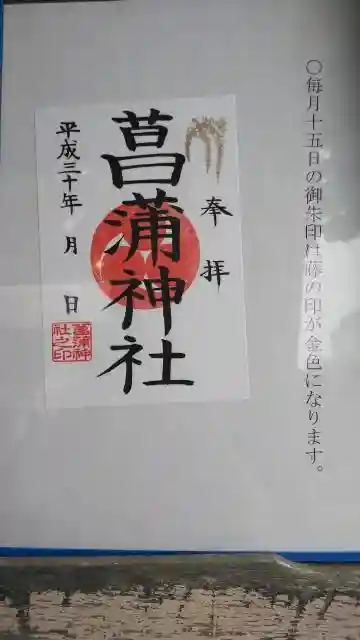 ○毎月十五日の御朱印は藤の印が金色になります。
奉拝
菖蒲神社
平成三十年 月 日
菖蒲神
社之印